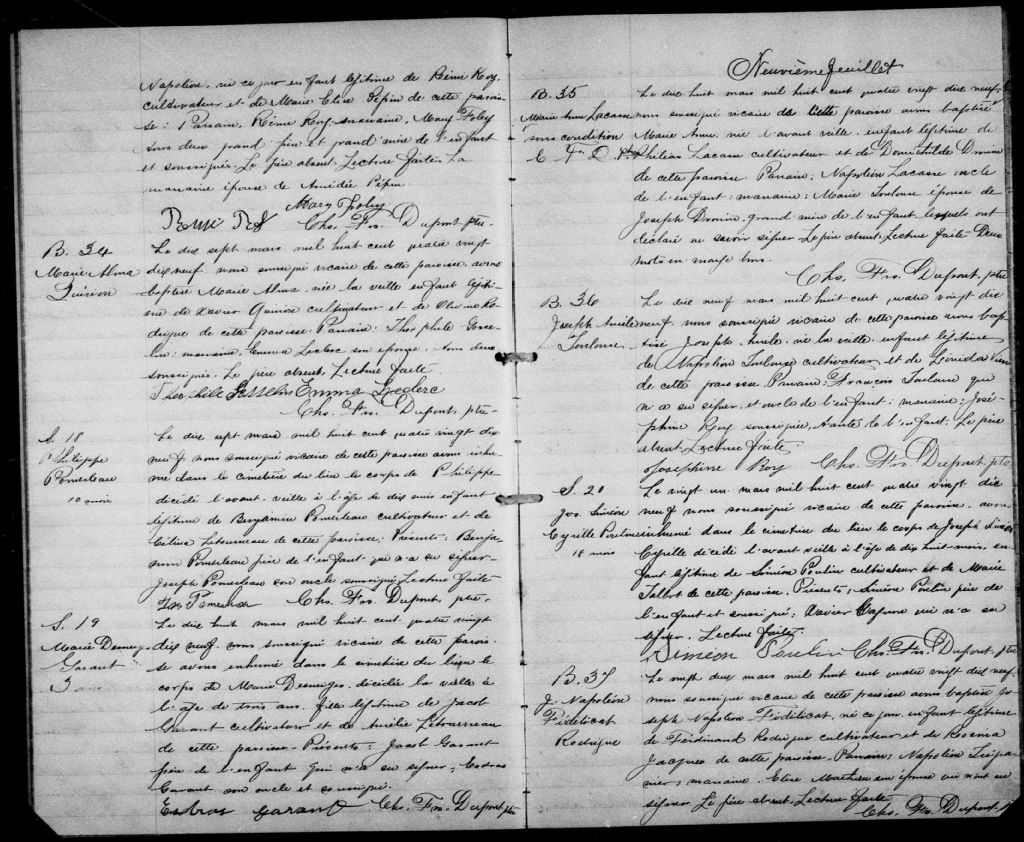 Napoléon, né ce jour enfant légitime de Rémi Roy
cultivateur et de Marie Elise Pépin de cette parois-
se: Parrain, Rémi Roy, marraine, Mary Foley
tous deux grand père et grand'mère de l'enfant
et soussignés. Le père absent. Lecture faite. La
marraine épouse de Amédée Pépin
Mary Foley
Remi Roy
Chs. Frs. Dupont, ptre.
B. 34
Marie Alma
Quirion
Le dix sept mars mil huit cent quatre vingt
dix neuf, nous soussigné vicaire de cette paroisse, avons
baptisé Marie Alma, née la veille enfant légiti-
me de Xavier Quirion cultivateur et de
Ro-
drigue de cette paroisse. Parrain: Théophile Gosse-
lin: marraine, Emma Leclerc son épouse, tous deux
soussignés. Le père absent. Lecture faite
Theophile Gosselin Emma Leclerc
Chs. Frs. Dupont, ptre-
S. 18
Philippe
Pomerleau
10 mois
Le dix sept mars mil huit cent quatre vingt dix
neuf nous soussigné vicaire de cette paroisse avons inhu-
mé dans le cimetière du lieu le corps de Philippe
décédé l'avant-veille à l'âge de dix mois enfant
légitime de Benjamin Pomerleau cultivateur et de
Célina Letourneau de cette paroisse: Présents: Benja-
min Pomerleau père de l'enfant qui n'a su signer
Joseph Pomerleau son oncle soussigné. Lecture faite
Jos Pomerleau Chs. Frs. Dupont, ptre-
S. 19
Marie Desneiges
Garant
3 ans
Le dix huit mars mil huit cent quatre vingt
dix neuf, nous soussigné vicaire de cette parois-
se avons inhumé dans le cimetière du lieu le
corps de Marie Desneiges, décédée la veille à
l'âge de trois ans, fille légitime de Jacob
Garant cultivateur et de Aurélie Létourneau
de cette paroisse. Présents: Jacob Garant
père de l'enfant qui n'a su signer, Esdras
Garant son oncle et soussigné.
Esdras Garant Chs. Frs. Dupont, ptre
Neuvième feuillet
B. 35
Marie Anne Lacasse
sous condition
C. F. D. ptre
Le dix huit mars mil huit cent quatre vingt dix neuf,
nous soussigné vicaire de cette paroisse avons baptisé
Marie Anne, née l'avant veille, enfant légitime de
Philéas Lacasse cultivateur et de Domithilde Drouin
de cette paroisse Parrain: Napoléon Lacasse oncle
de l'enfant: marraine: Marie Toulouse épouse de
Joseph Drouin, grand'mère de l'enfant, lesquels ont
déclaré ne savoir signer. Le père absent. Lecture faite Deux
mots en marge bons.
Chs. Frs. Dupont, ptre
B. 36
Joseph
Toulouse
Le dix neuf mars mil huit cent quatre vingt dix
neuf, nous soussigné vicaire de cette paroisse avons bap-
tisé Joseph
né la veille, enfant légitime
de Napoléon Toulouse cultivateur et de
de cette paroisse Parrain: François Toulouse qui
n'a su signer, et oncle de l'enfant: marraine: José-
phine Roy soussignée, tante de l'enfant. Le père
absent. Lecture faite
Josephine Roy Chs. Frs. Dupont, ptre
S. 20
Jos. Siméon
Cyrille Poulin
18 mois
Le vingt un mars mil huit cent quatre vingt dix
neuf nous soussigné vicaire de cette paroisse, avons
inhumé dans le cimetière du lieu le corps de Joseph Siméon
Cyrille décédé l'avant veille à l'âge de dix huit mois, en-
fant légitime de Siméon Poulin cultivateur et de Marie
Talbot de cette paroisse, Présents, Siméon Poulin père de
l'enfant et soussigné; Xavier
qui n'a su
signer. Lecture faite.
Siméon Poulin Chs. Frs. Dupont, ptre
B. 37
J. Napoléon
Fidélicat
Rodrigue
Le vingt deux mars mil huit cent quatre vingt dix neuf,
nous soussigné vicaire de cette paroisse avons baptisé Jo-
seph Napoléon Fidélicat, né ce jour, enfant légitime
de Ferdinand Rodrigue cultivateur et de Rosanna
Jacques de cette paroisse, Parrain, Napoléon
marraine, Elise Mathieu son épouse qui n'ont su
signer. Le père absent. Lecture faite
Chs. Frs. Dupont, ptre